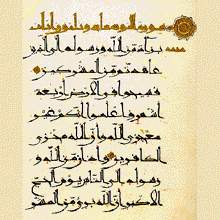 براة من الله ورسوله الى الذين
عاهدتم من المشركين
فسيحوا في الارض اربعة
اشهر واعلموا انكم غير
معجزي الله وان الله مخزي
الكافرين واذان من الله و
رسوله الى الناس يوم الحج
الاكبر ان الله برى من المشر